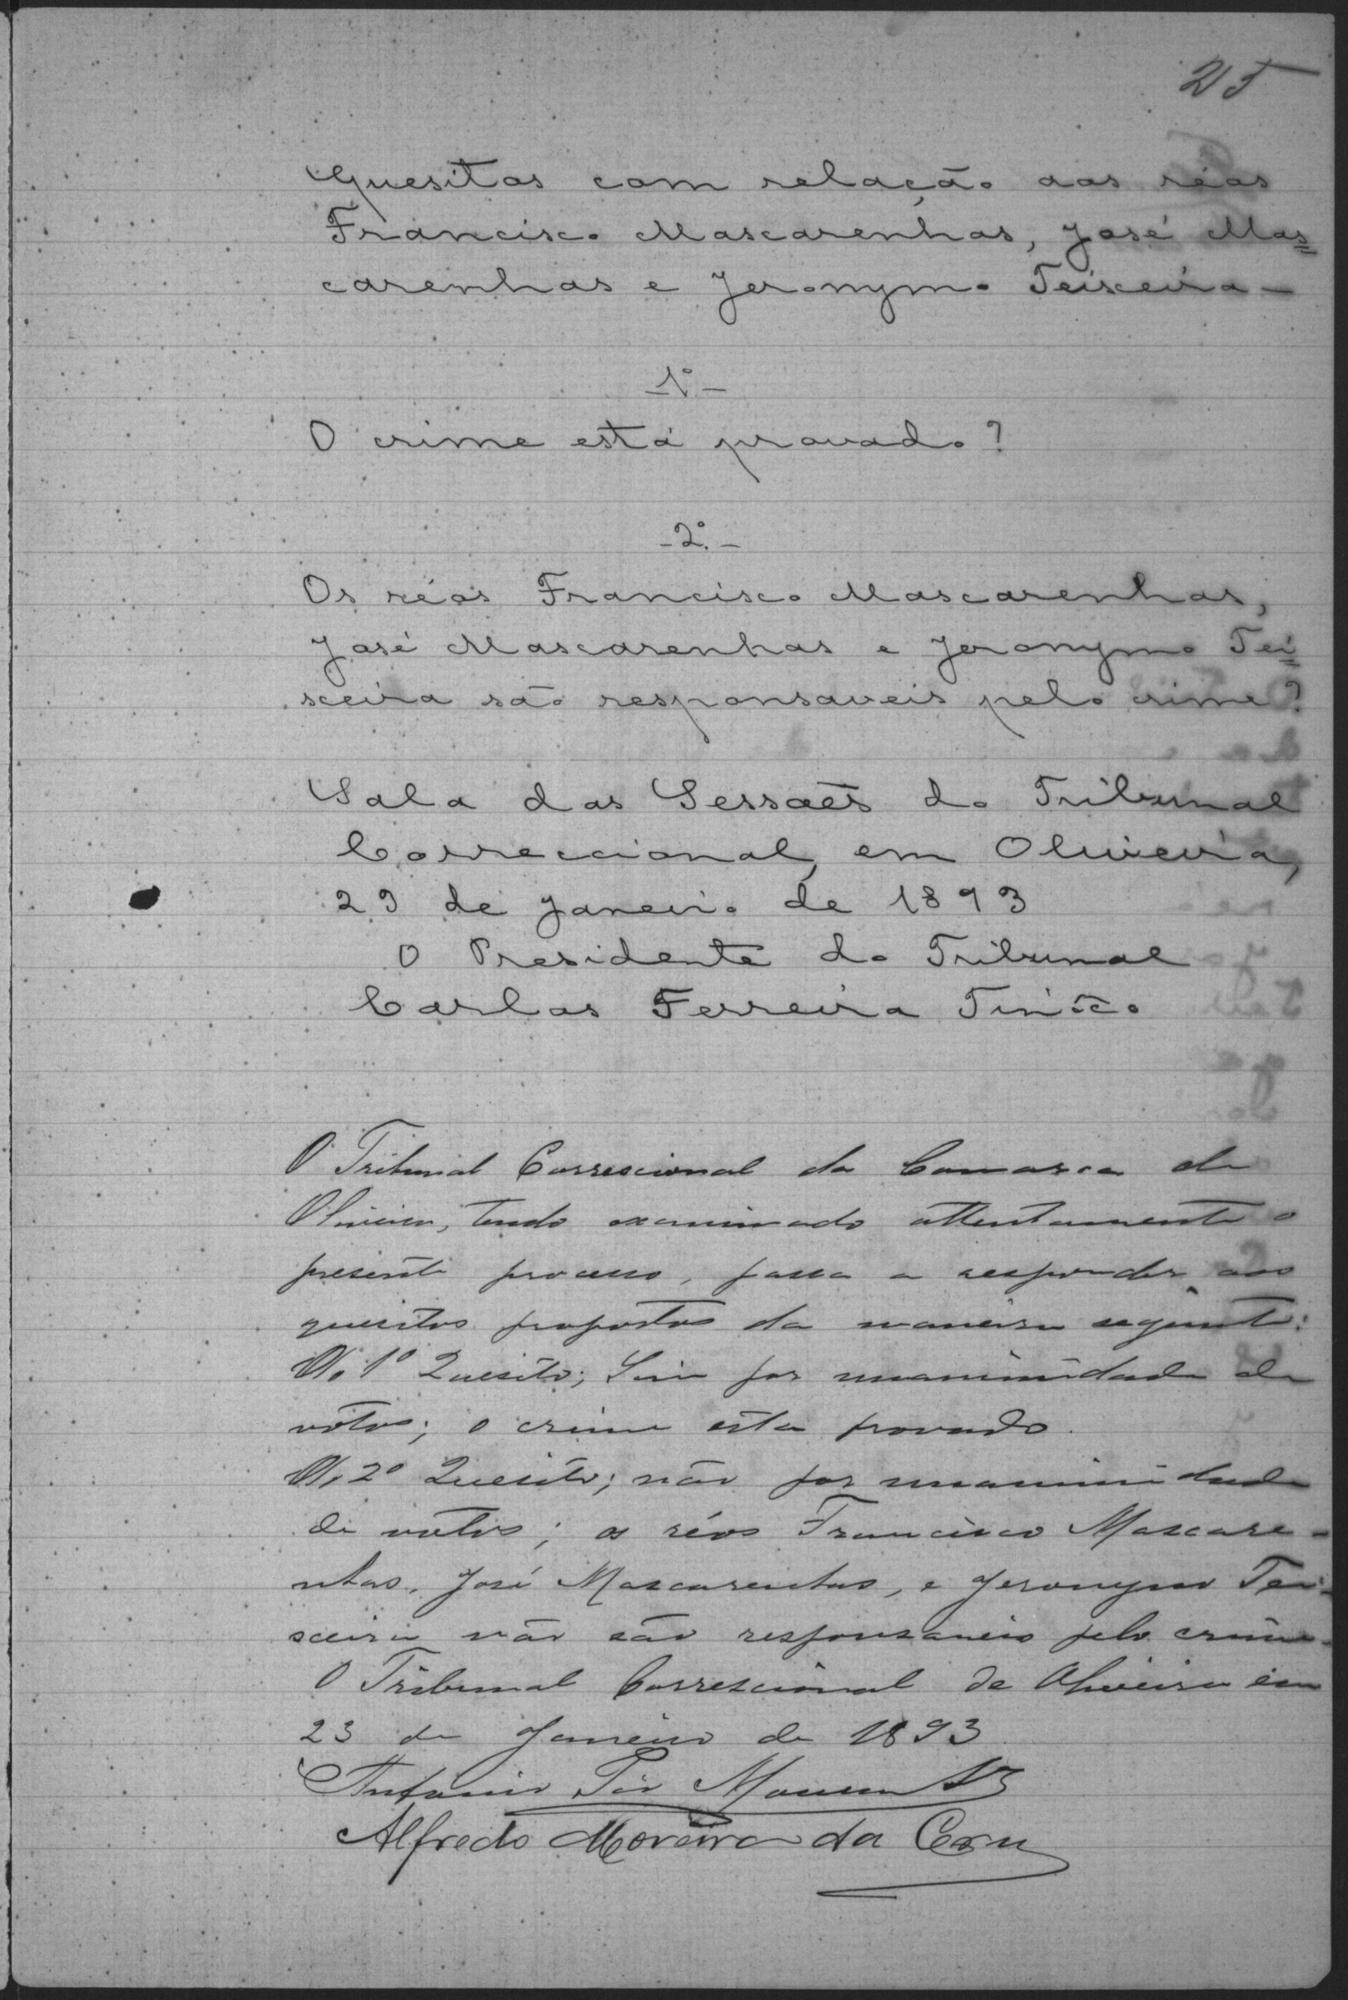 25
Quesitos com relação aos réos
Francisco Mascarenhas, José Mas=
carenhas e Jeronymo Teixeira—
—1º—
O crime está provado?
—2º—
Os réos Francisco Mascarenhas,
José Mascarenhas e Jeronymo Tei=
xeira são responsaveis pelo crime?
Sala das Sessões do Tribunal
Correccional, em Oliveira,
23 de Janeiro de 1893
O Presidente do Tribunal
Carlos Ferreira Tinôco
O Tribunal Correccional da Comarca de
Oliveira, tendo examinado attentamente o
presente processo, passa a responder aos
quesitos propostos da maneira seguinte:
Ao 1º Quesito; Sim por unanimidade de
votos; o crime esta provado.
Ao 2º Quesito; não por unanimidade
de votos; os réos Francisco Mascare-
nhas, José Mascarenhas, e Jeronymo Tei-
xeira não são responsaveis pelo crime.
O Tribunal Correccional de Oliveira em
23 de Janeiro de 1893
Antonio
Alfredo Moreira da